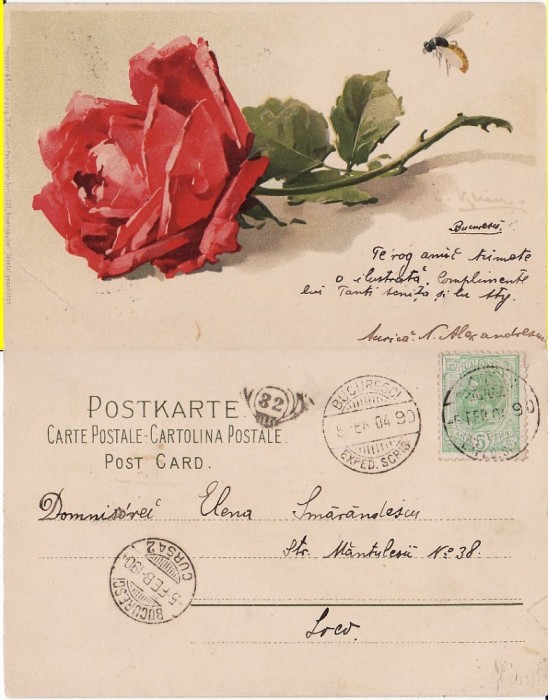 C. Klein
Bucuresci.
Te rog amic trimete
o ilustrată. Complimente
lui Tanti și lu
Aurică N. Alexandrescu
POSTKARTE.
CARTE POSTALE-CARTOLINA POSTALE.
POST CARD.
32
BUCURESCI
5 FEB 04 90
EXPED. SCRIS.
5 FEB 04 90
5
Domnișórei Elena Smărăndescu
Str. Mântulesii No 38.
Loco.
BUCURESCI
5-FEB-904
CURSA 2